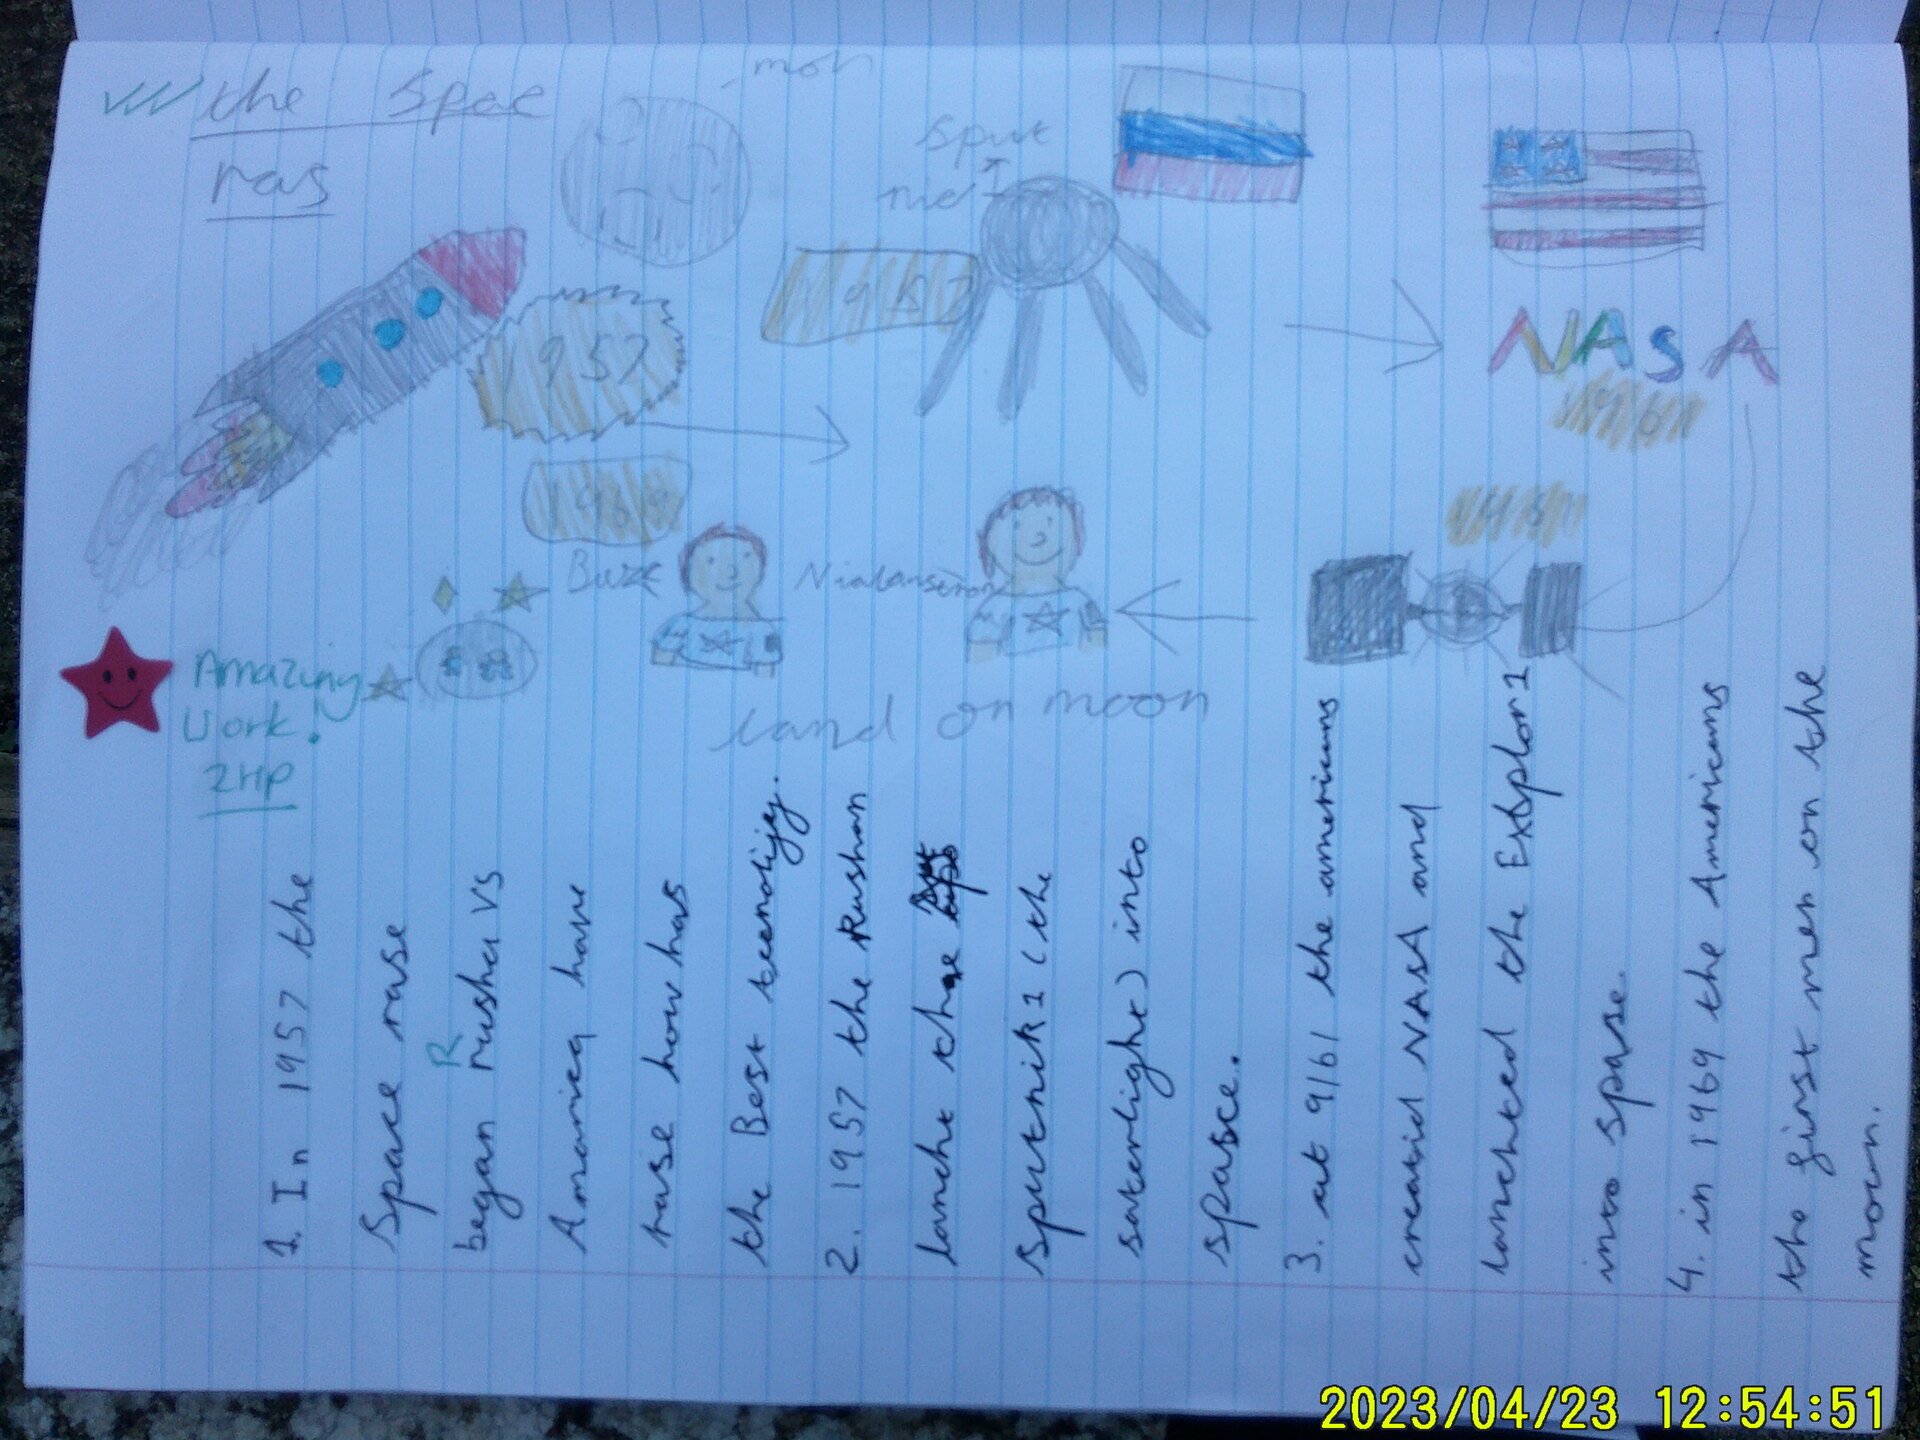 the Spac
ras
moh
Sput
nic
1957
1957
NASA
Buze
land on moon
Amazing
Work.
2HP
1. In 1957 the
Space rase
R
began rusha vs
Amarica have
rase how has
the Best teenolijey.
2. 1957 the Rushan
lancht the
Sputnik 1 (the
saterlight) into
spasce.
3. at 9161 the americans
creatid NASA and
lanchted the Explor 1
inoo spase.
4. in 1969 the Americans
the first men on the
moon.
2023/04/23 12:54:51